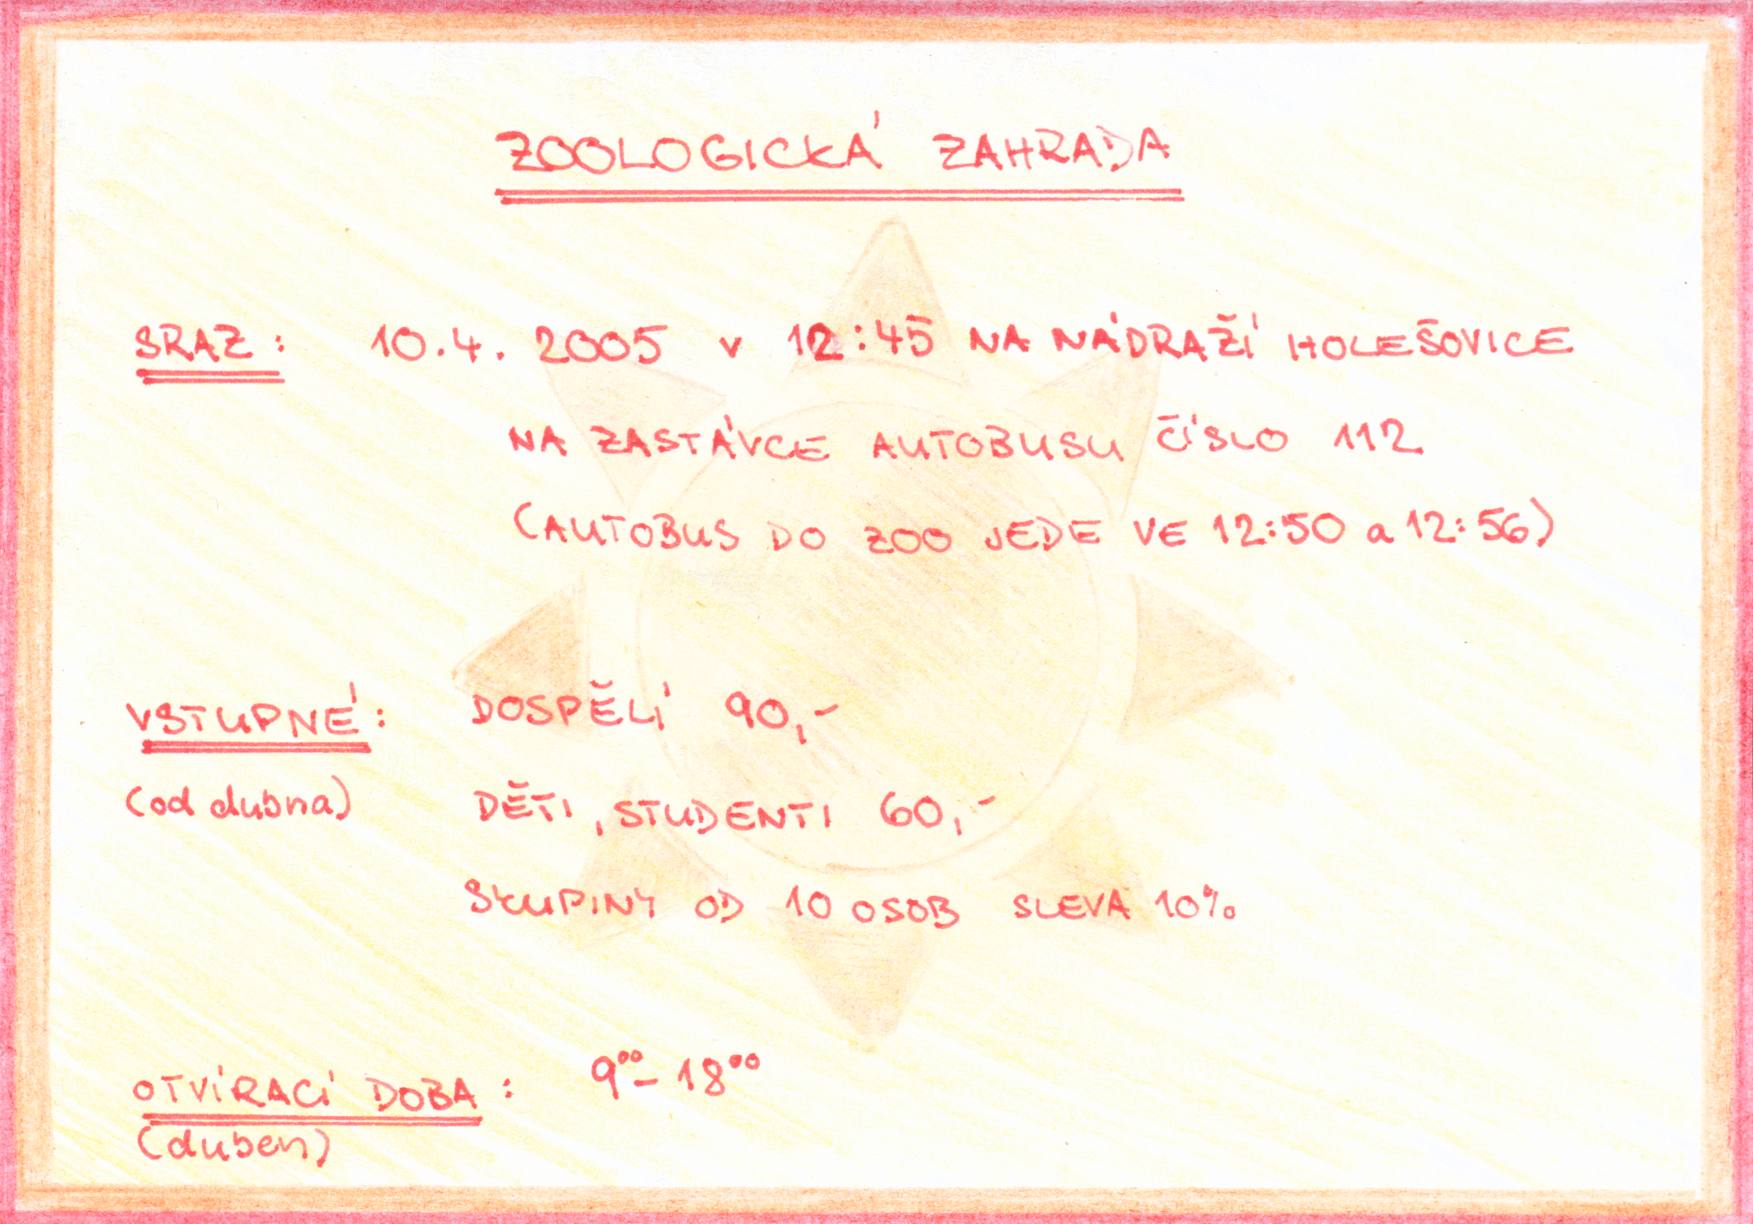 ZOOLOGICKÁ ZAHRADA
SRAZ: 10.4. 2005 v 12:45 NA NÁDRAŽÍ HOLEŠOVICE
NA ZASTÁVCE AUTOBUSU ČÍSLO 112
(AUTOBUS DO ZOO JEDE VE 12:50 a 12:56)
VSTUPNÉ: DOSPĚLÍ 90,-
(od dubna) DĚTI, STUDENTI 60,-
SKUPINY OD 10 OSOB SLEVA 10%
OTVÍRACÍ DOBA: 9⁰⁰- 18⁰⁰
(duben)